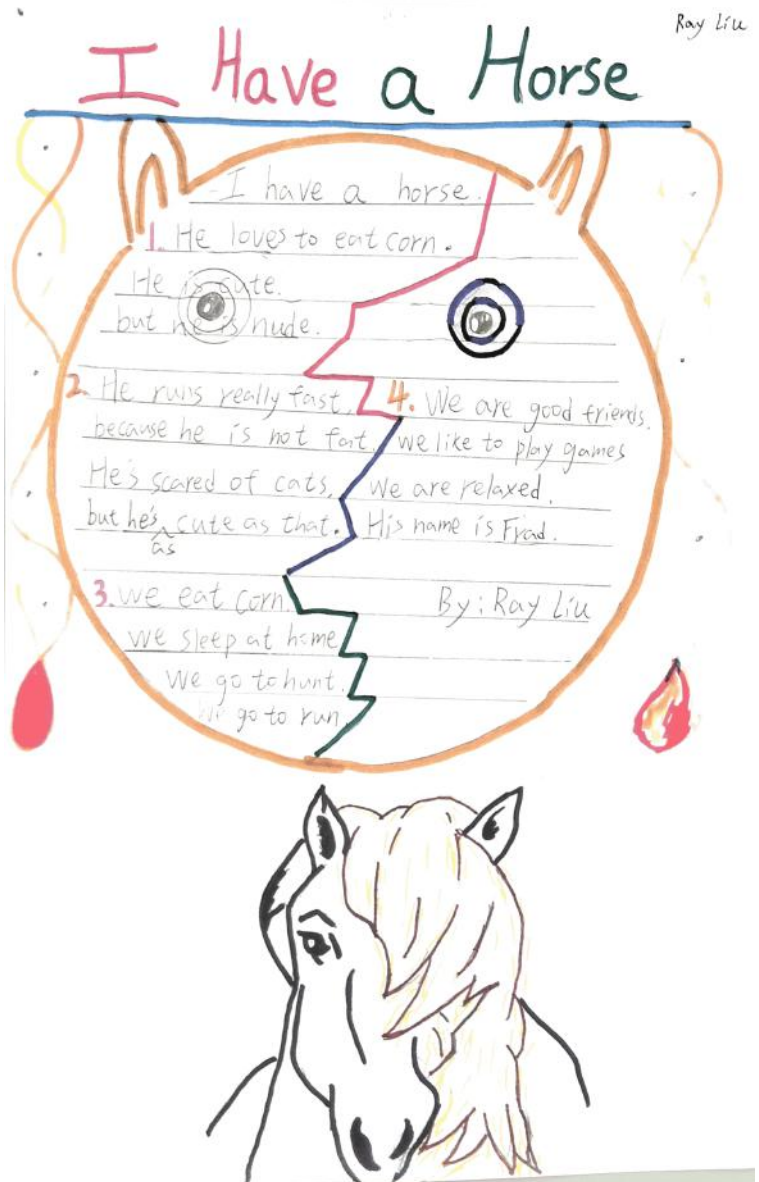 Ray Liu
I Have a Horse
I have a horse.
1. He loves to eat corn.
He is cute.
but he is nude.
2. He runs really fast,
because he is not fat.
He's scared of cats,
but he's as cute as that.
3. we eat corn.
we sleep at home
we go to hunt.
we go to run
4. We are good friends.
we like to play games
we are relaxed.
His name is Frad.
By: Ray Liu